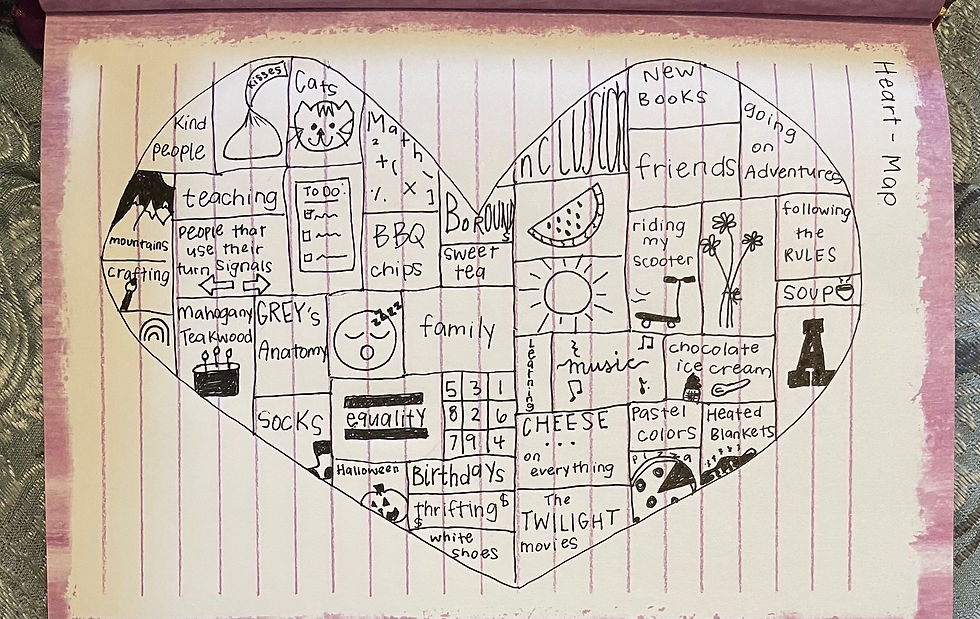 Heart - Map
Kind
people
Kisses
Cats
Math
2
+(
% X ]
mountains
teaching
people that
use their
turn signals
TO DO:
BBQ
chips
BoROUNDS
sweet
tea
crafting
Mahogany
Teakwood
GREY's
Anatomy
zzzz
family
SOCKS
equality
5 3 1
8 2 6
7 9 4
Halloween
Birthdays
thrifting $
$
white
shoes
INCLUSION
New
BOOKS
going
on
Adventures
friends
riding
my
scooter
following
the
RULES
SOUP
A
Learning
music
chocolate
ice cream
CHEESE
...
on
everything
Pastel
colors
Heated
Blankets
pizza
The
TWILIGHT
movies